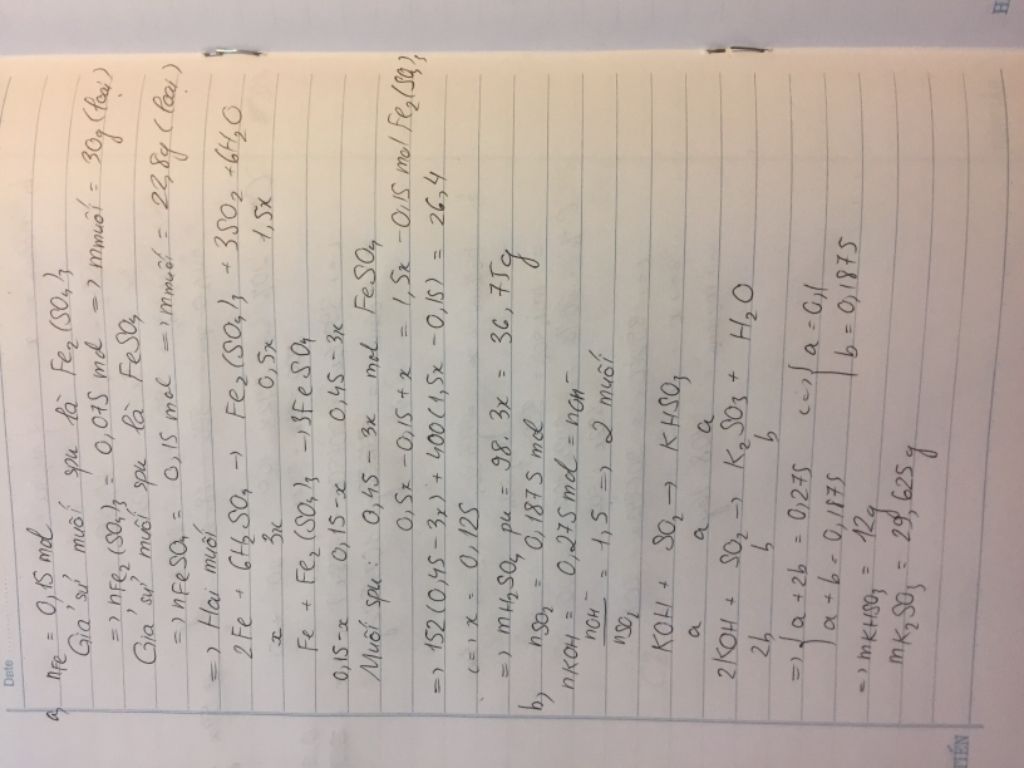 Date
a, nFe = 0,15 mol
Giả sử muối spu là Fe2(SO4)3
=> nFe2(SO4)3 = 0,075 mol => mmuối = 30g (loại)
Giả sử muối spu là FeSO4
=> nFeSO4 = 0,15 mol => mmuối = 22,8g (loại)
=> Hai muối
2Fe + 6H2SO4 -> Fe2(SO4)3 + 3SO2 + 6H2O
x 3x 0,5x 1,5x
Fe + Fe2(SO4)3 -> 3FeSO4
0,15-x 0,15-x 0,45-3x
Muối spu: 0,45-3x mol FeSO4
0,5x-0,15+x = 1,5x-0,15 mol Fe2(SO4)3
=> 152(0,45-3x)+400(1,5x-0,15) = 26,4
<=> x = 0,125
=> mH2SO4 pu = 98.3x = 36,75g
b, nSO2 = 0,1875 mol
nKOH = 0,275 mol = nOH-
nOH-
/nSO2 = 1,5 => 2 muối
KOH + SO2 -> KHSO3
a a a
2KOH + SO2 -> K2SO3 + H2O
2b b b
=> { a+2b = 0,275 <=> { a = 0,1
a+b = 0,1875 b = 0,1875
=> mKHSO3 = 12g
mK2SO3 = 29,625g
TIẾN
H